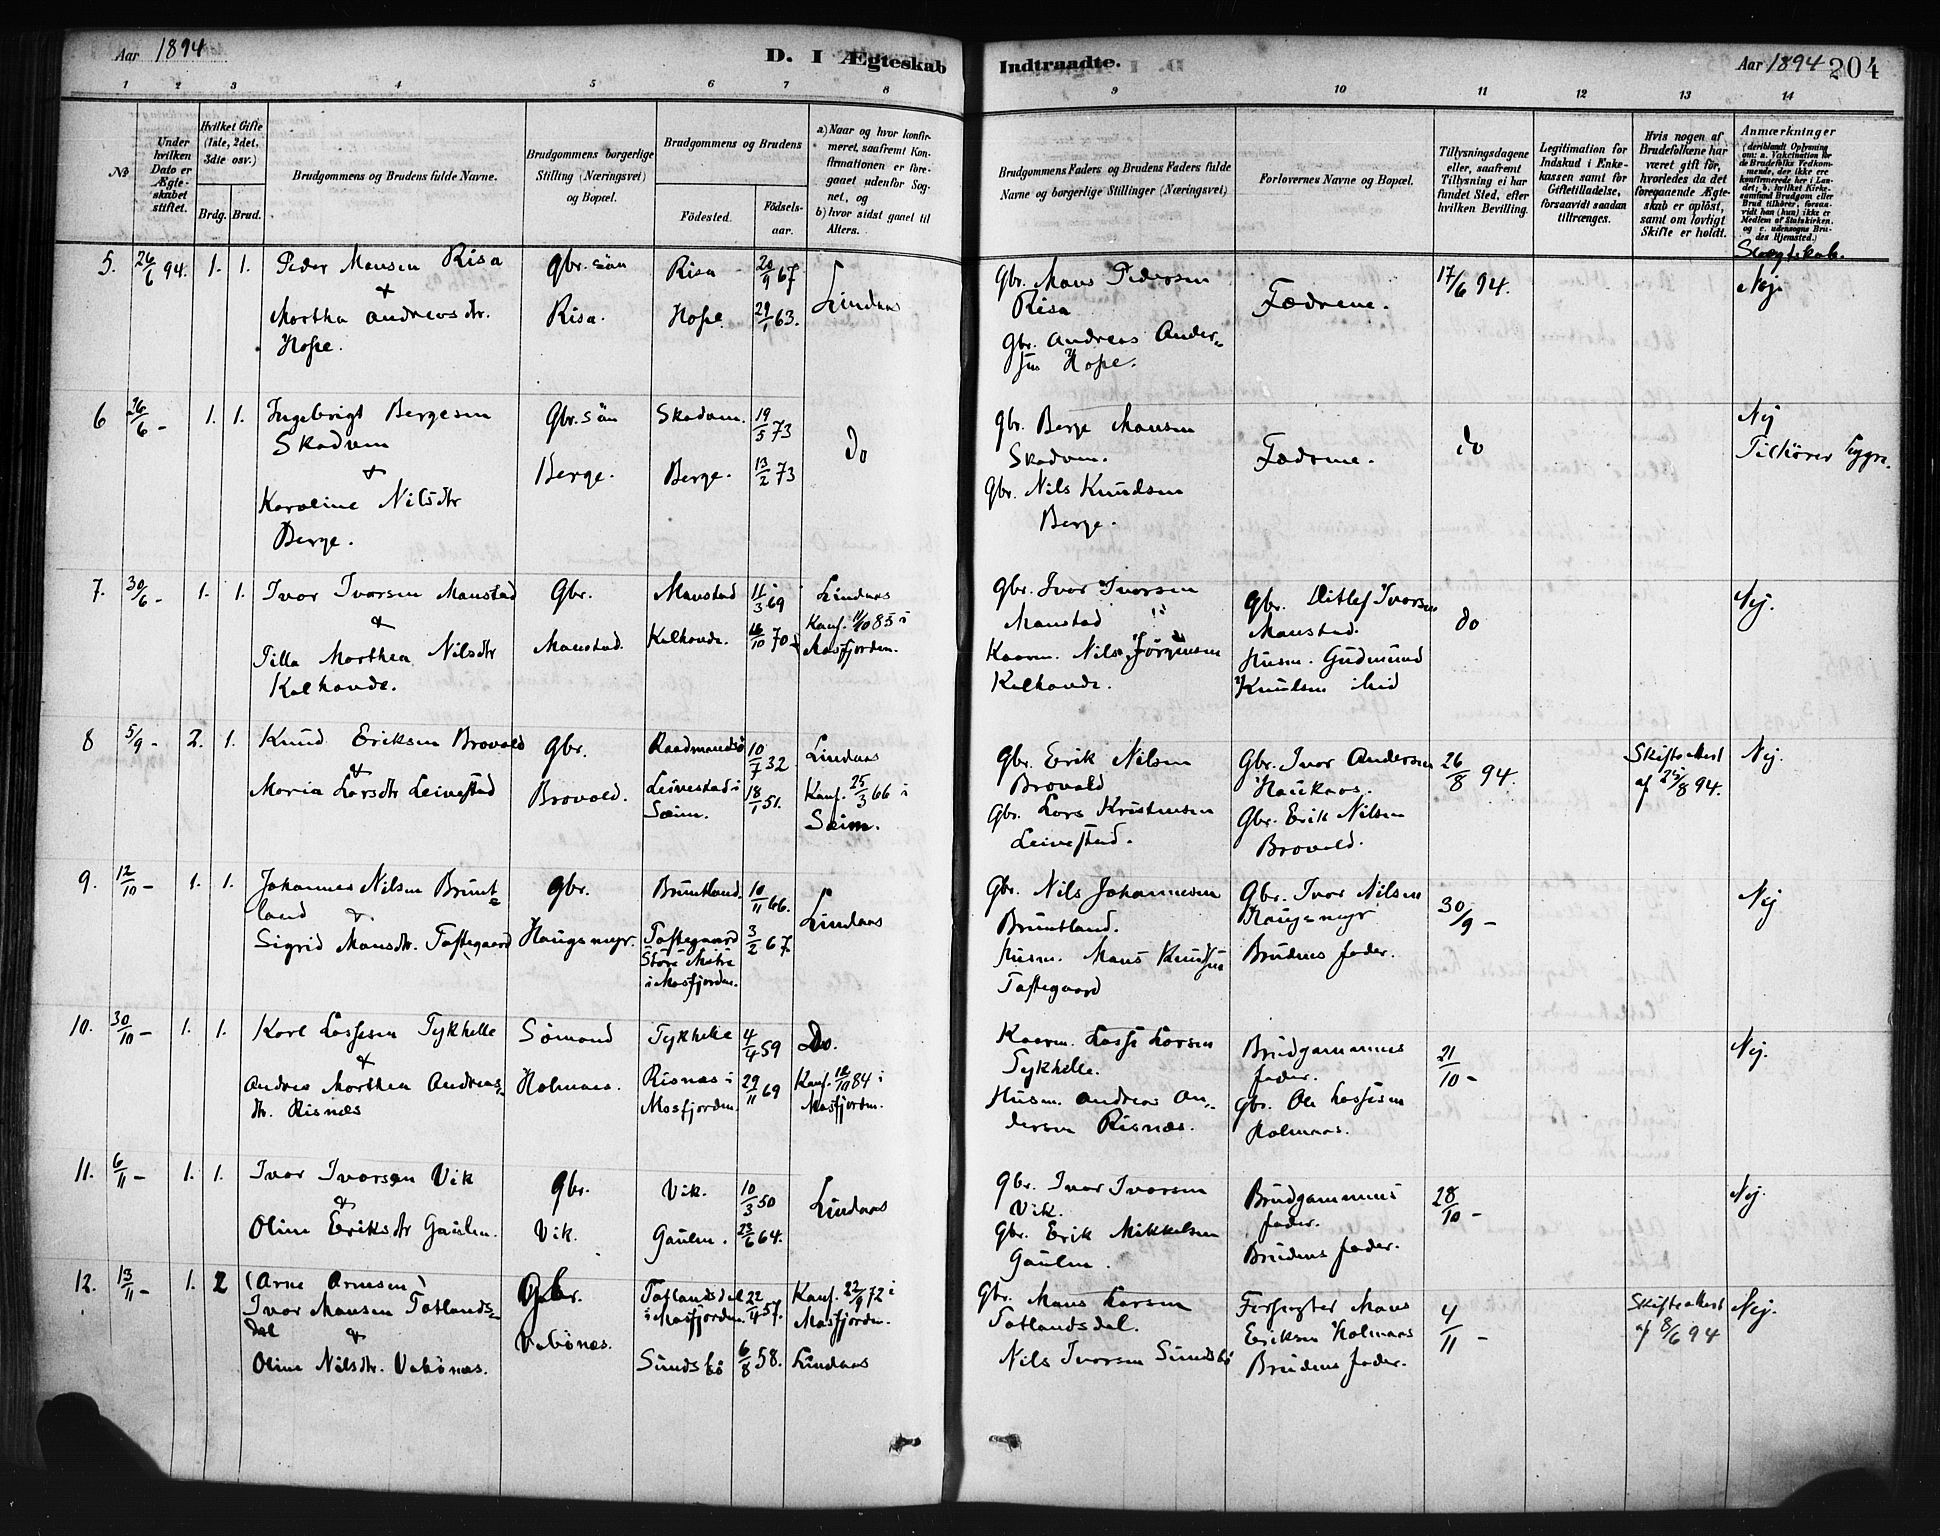 Aar 1894
D. I Ægteskab
Indtraadte.
Aar 1894
204
1 2 3 4 5 6 7 8 9 10 11 12 13 14
No
Under hvilken Dato er Ægteskabet stiftet.
Hvilket Gifte (1ste, 2det, 3die osv.)
Brdg. Brud.
Brudgommens og Brudens fulde Navne.
Brudgommens borgerlige Stilling (Næringsvei) og Bopæl.
Brudgommens og Brudens
Födested.
Födsels-aar.
a) Naar og hvor konfirmeret, saafremt Konfirmationen er foregaaet udenfor Sognet, og
b) hvor sidst gaaet til Alters.
Brudgommens Faders og Brudens Faders fulde Navne og borgerlige Stillinger (Næringsvei)
Forlovernes Navne og Bopæl.
Tillysningsdagene eller, saafremt Tillysning ei har fundet Sted, efter hvilken Bevilling.
Legitimation for Indskud i Enkekassen samt for Giftetilladelse, forsaavidt saadan tiltrænges.
Hvis nogen af Brudefolkene har været gift för, hvorledes da det foregaaende Ægteskab er oplöst, samt om lovligt Skifte er holdt.
Anmærkninger
(deriblandt Oplysning om: a. Vakcination för de Brudefolks Vedkommende, der ikke ere konfirmerede her i Landet; b. hvilket Kirkesamfund Brudgom eller Brud tilhörer, forsaavidt han (hun) ikke er Medlem af Statskirken, og c. udensogns Brudes Hjemsted.)
Slægtskab.
5. 26/6 94. 1. 1. Peder Monsen Risa
&
Martha Andreasdtr.
Hope.
Gbr. sön
Risa.
Risa
Hope.
20/9 67
29/1 63.
Lindaas
Gbr. Mons Pedersen
Risa
Gbr. Andreas Ander=
sen Hope.
Fædrene.
17/6 94.
Nej
6 26/6 - 1. 1. Ingebrigt Bergesen
Skodven
&
Karoline Nilsdtr
Berge.
Gbr. sön
Berge.
Skodven.
Berge.
19/5 73
13/2 73
do
Gbr. Berge Monsen
Skodven.
Gbr. Nils Knudsen
Berge.
Fædrene.
do
Nej
Tilhører Hygre.
7. 30/6 - 1. 1. Ivar Ivarsen Monstad
&
Tilla Marthea Nilsdtr
Kolhovde.
Gbr.
Monstad.
Monstad
Kolhovde.
11/3 69
16/10 70
Lindaas
Konf. 11/10 85 i
Masfjorden.
Gbr. Ivar Ivarsen
Monstad
Kaarm. Nils Jørgensen
Kolhovde.
Gbr. Ditlef Ivarsen
Monstad.
Husm. Gudmund
Knudsen
do
Nej.
8 5/9 - 2. 1. Knud Eriksen Brovold
&
Maria Larsdtr Leivestad
Gbr.
Brovold.
Raadmandsö
Leivestad i
Sæim.
10/7 32
18/1 51.
Lindaas
Konf. 25/3 66 i
Sæim.
Gbr. Erik Nilsen
Brovold
Gbr. Lars Kristensen
Leivestad.
Gbr. Ivar Andersen
Haukaas.
Gbr. Erik Nilsen
Brovold.
26/8 94.
Skifteattest
af 25/8 94.
Nej.
9. 12/10 - 1. 1. Johannes Nilsen Brunt=
land
&
Sigrid Monsdtr. Toftegaard
Gbr.
Haugsmyr.
Bruntland.
Toftegaard
Store Matre
i Masfjorden.
10/11 66.
3/2 67.
Lindaas
Gbr. Nils Johannesen
Bruntland.
Husm. Mons Knudsen
Toftegaard
Gbr. Ivar Nilsen
Haugsmyr
Brudens fader.
30/9 -
Nej
10. 30/10 - 1. 1. Karl Lassesen Tykhelle
&
Andrea Marthea Andreas=
dtr. Risnæs
Sömand
Holmaas.
Tykhelle
Risnæs i
Masfjorden.
4/4 59
29/11 69
Do.
Konf. 12/10 84 i
Masfjorden.
Kaarm. Lasse Larsen
Tykhelle.
Husm. Andreas An=
dersen Risnæs.
Brudgommens
fader.
Gbr. Ole Lassesen
Holmaas.
21/10 -
Nej.
11. 6/11 - 1. 1. Ivar Ivarsen Vik
&
Oline Eriksdtr Gaulen.
Gbr.
Vik.
Vik.
Gaulen.
10/3 50
23/6 64.
Lindaas
Gbr. Ivar Ivarsen
Vik.
Gbr. Erik Mikkelsen
Gaulen.
Brudgommens
fader.
Brudens fader.
28/10 -
Nej.
12. 13/11 - 1. 2 (Arne Arnesen)
Ivar Monsen Totlands=
dal
&
Oline Nilsdtr. Vabönæs.
Gbr.
Vabönæs.
Totlandsdal
i Masfjorden.
Sundsbö
22/4 57.
6/8 58.
Konf. 22/9 72 i
Masfjorden.
Lindaas
Gbr. Mons Larsen
Totlandsdal.
Nils Ivarsen Sundsbö
Forpagter Mons
Eriksen Holmaas
Brudens fader.
4/11 -
Skifteattest
af 8/6 94
Nej.